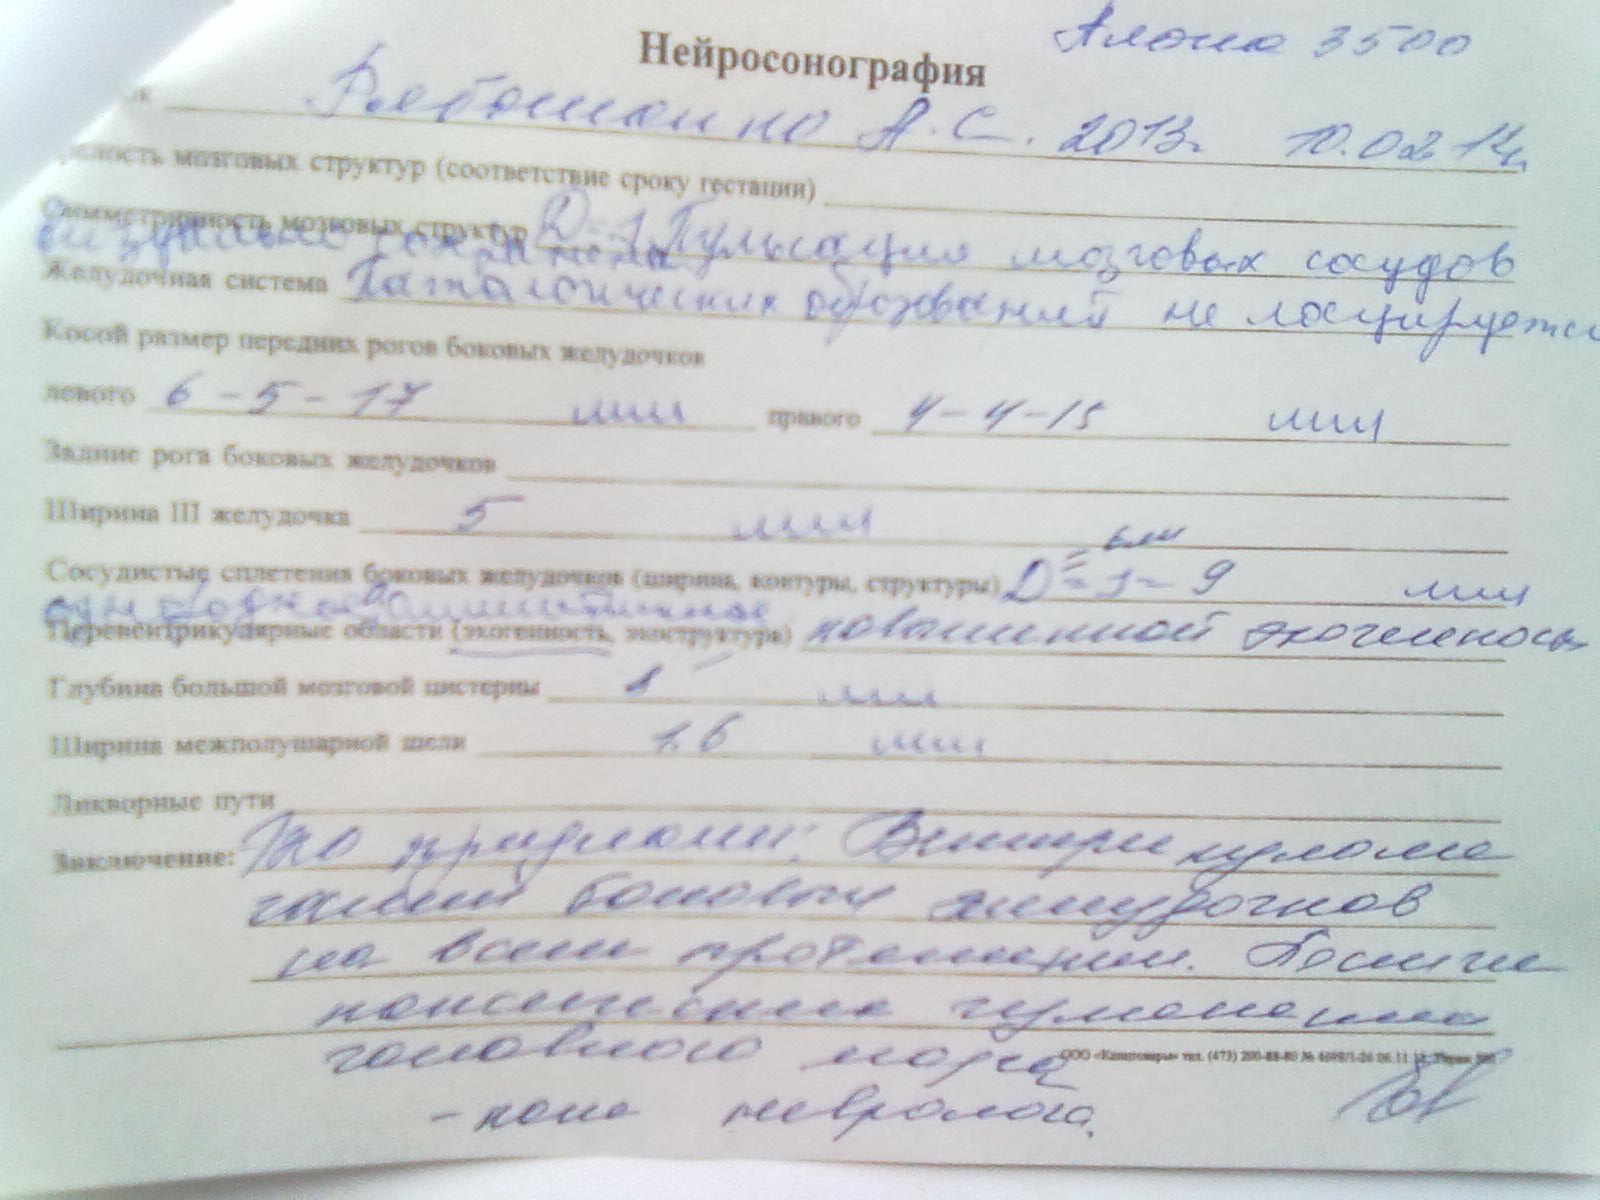 Алока 3500
Нейросонография
А.С. 2013г. 10.02.14г.
мозговых структур (соответствие сроку гестации)
Симметричность мозговых структур D=S Пульсация мозговых сосудов
визуально сохранена
Желудочная система Патологических образований не лоцируется
Косой размер передних рогов боковых желудочков
левого 6-5-17 мм правого 4-4-15 мм
Задние рога боковых желудочков
Ширина III желудочка 5 мм
Сосудистые сплетения боковых желудочков (ширина, контуры, структуры) D=S=9 мм
однородные
Перевентрикулярные области (экогенность, экоструктура) повышенной эхогенности
Глубина большой мозговой цистерны мм
Ширина межполушарной щели 1,6 мм
Ликворные пути
Заключение: Эхо признаки: Вентрикуломе
галии боковых желудочков
на всем протяжении.
головного мозга
ООО тел. (473)
- конс невролога.